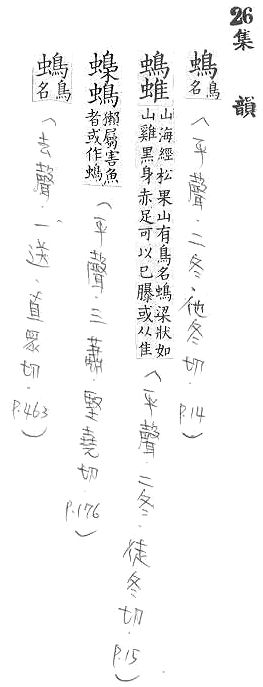 26集 韻
䳋鳥名（平聲．二冬．他冬切．P.14）
䳋𧌝山海經松果山有鳥名䳋渠狀如山雞黑身赤足可以已𦢊或从隹（平聲．二冬．徒冬切．P.15）
獺屬害魚者或作䳋（平聲．三蕭．堅堯切．P.176）
䳋鳥名（去聲．一送．直眾切．P.463）